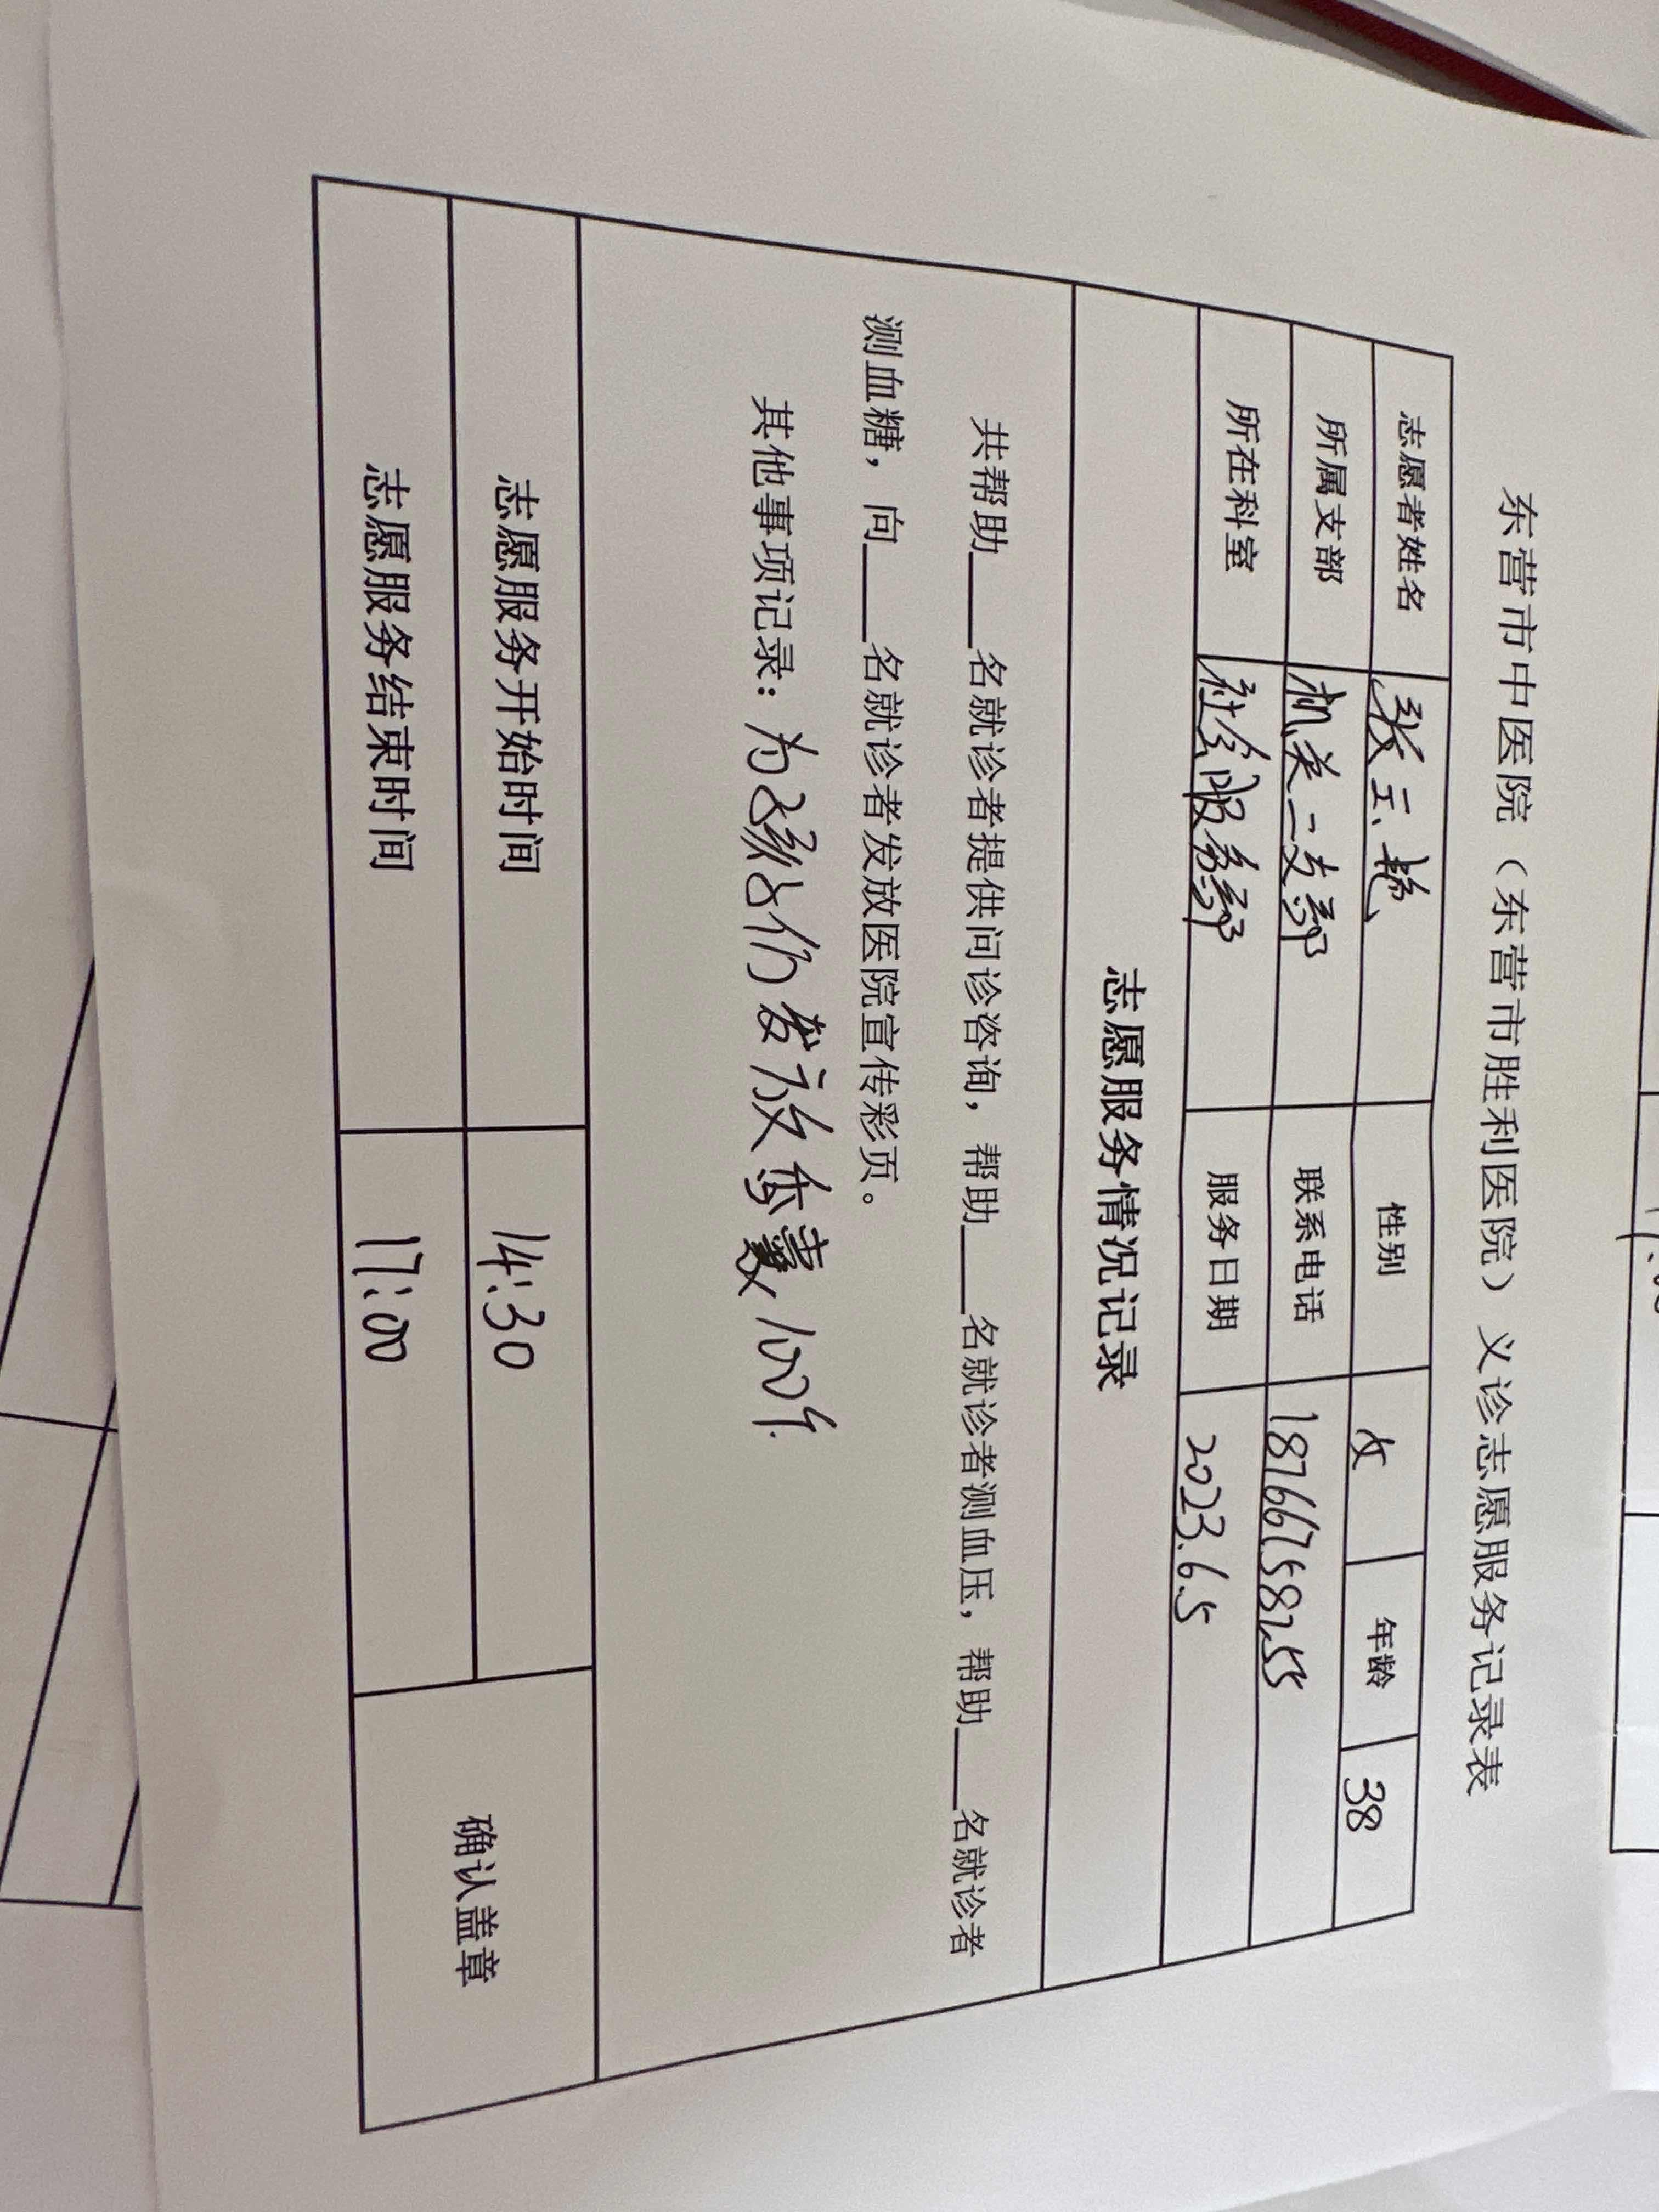 东营市中医院（东营市胜利医院）义诊志愿服务记录表
志愿者姓名 张云艳 性别 女 年龄 38
所属支部 机关二支部 联系电话 18766758255
所在科室 社会服务部 服务日期 2023.6.5
志愿服务情况记录
共帮助____名就诊者提供问诊咨询，帮助____名就诊者测血压，帮助____名就诊者
测血糖，向____名就诊者发放医院宣传彩页。
其他事项记录：为孩子们发放香囊100个
志愿服务开始时间 14:30 确认盖章
志愿服务结束时间 17:00